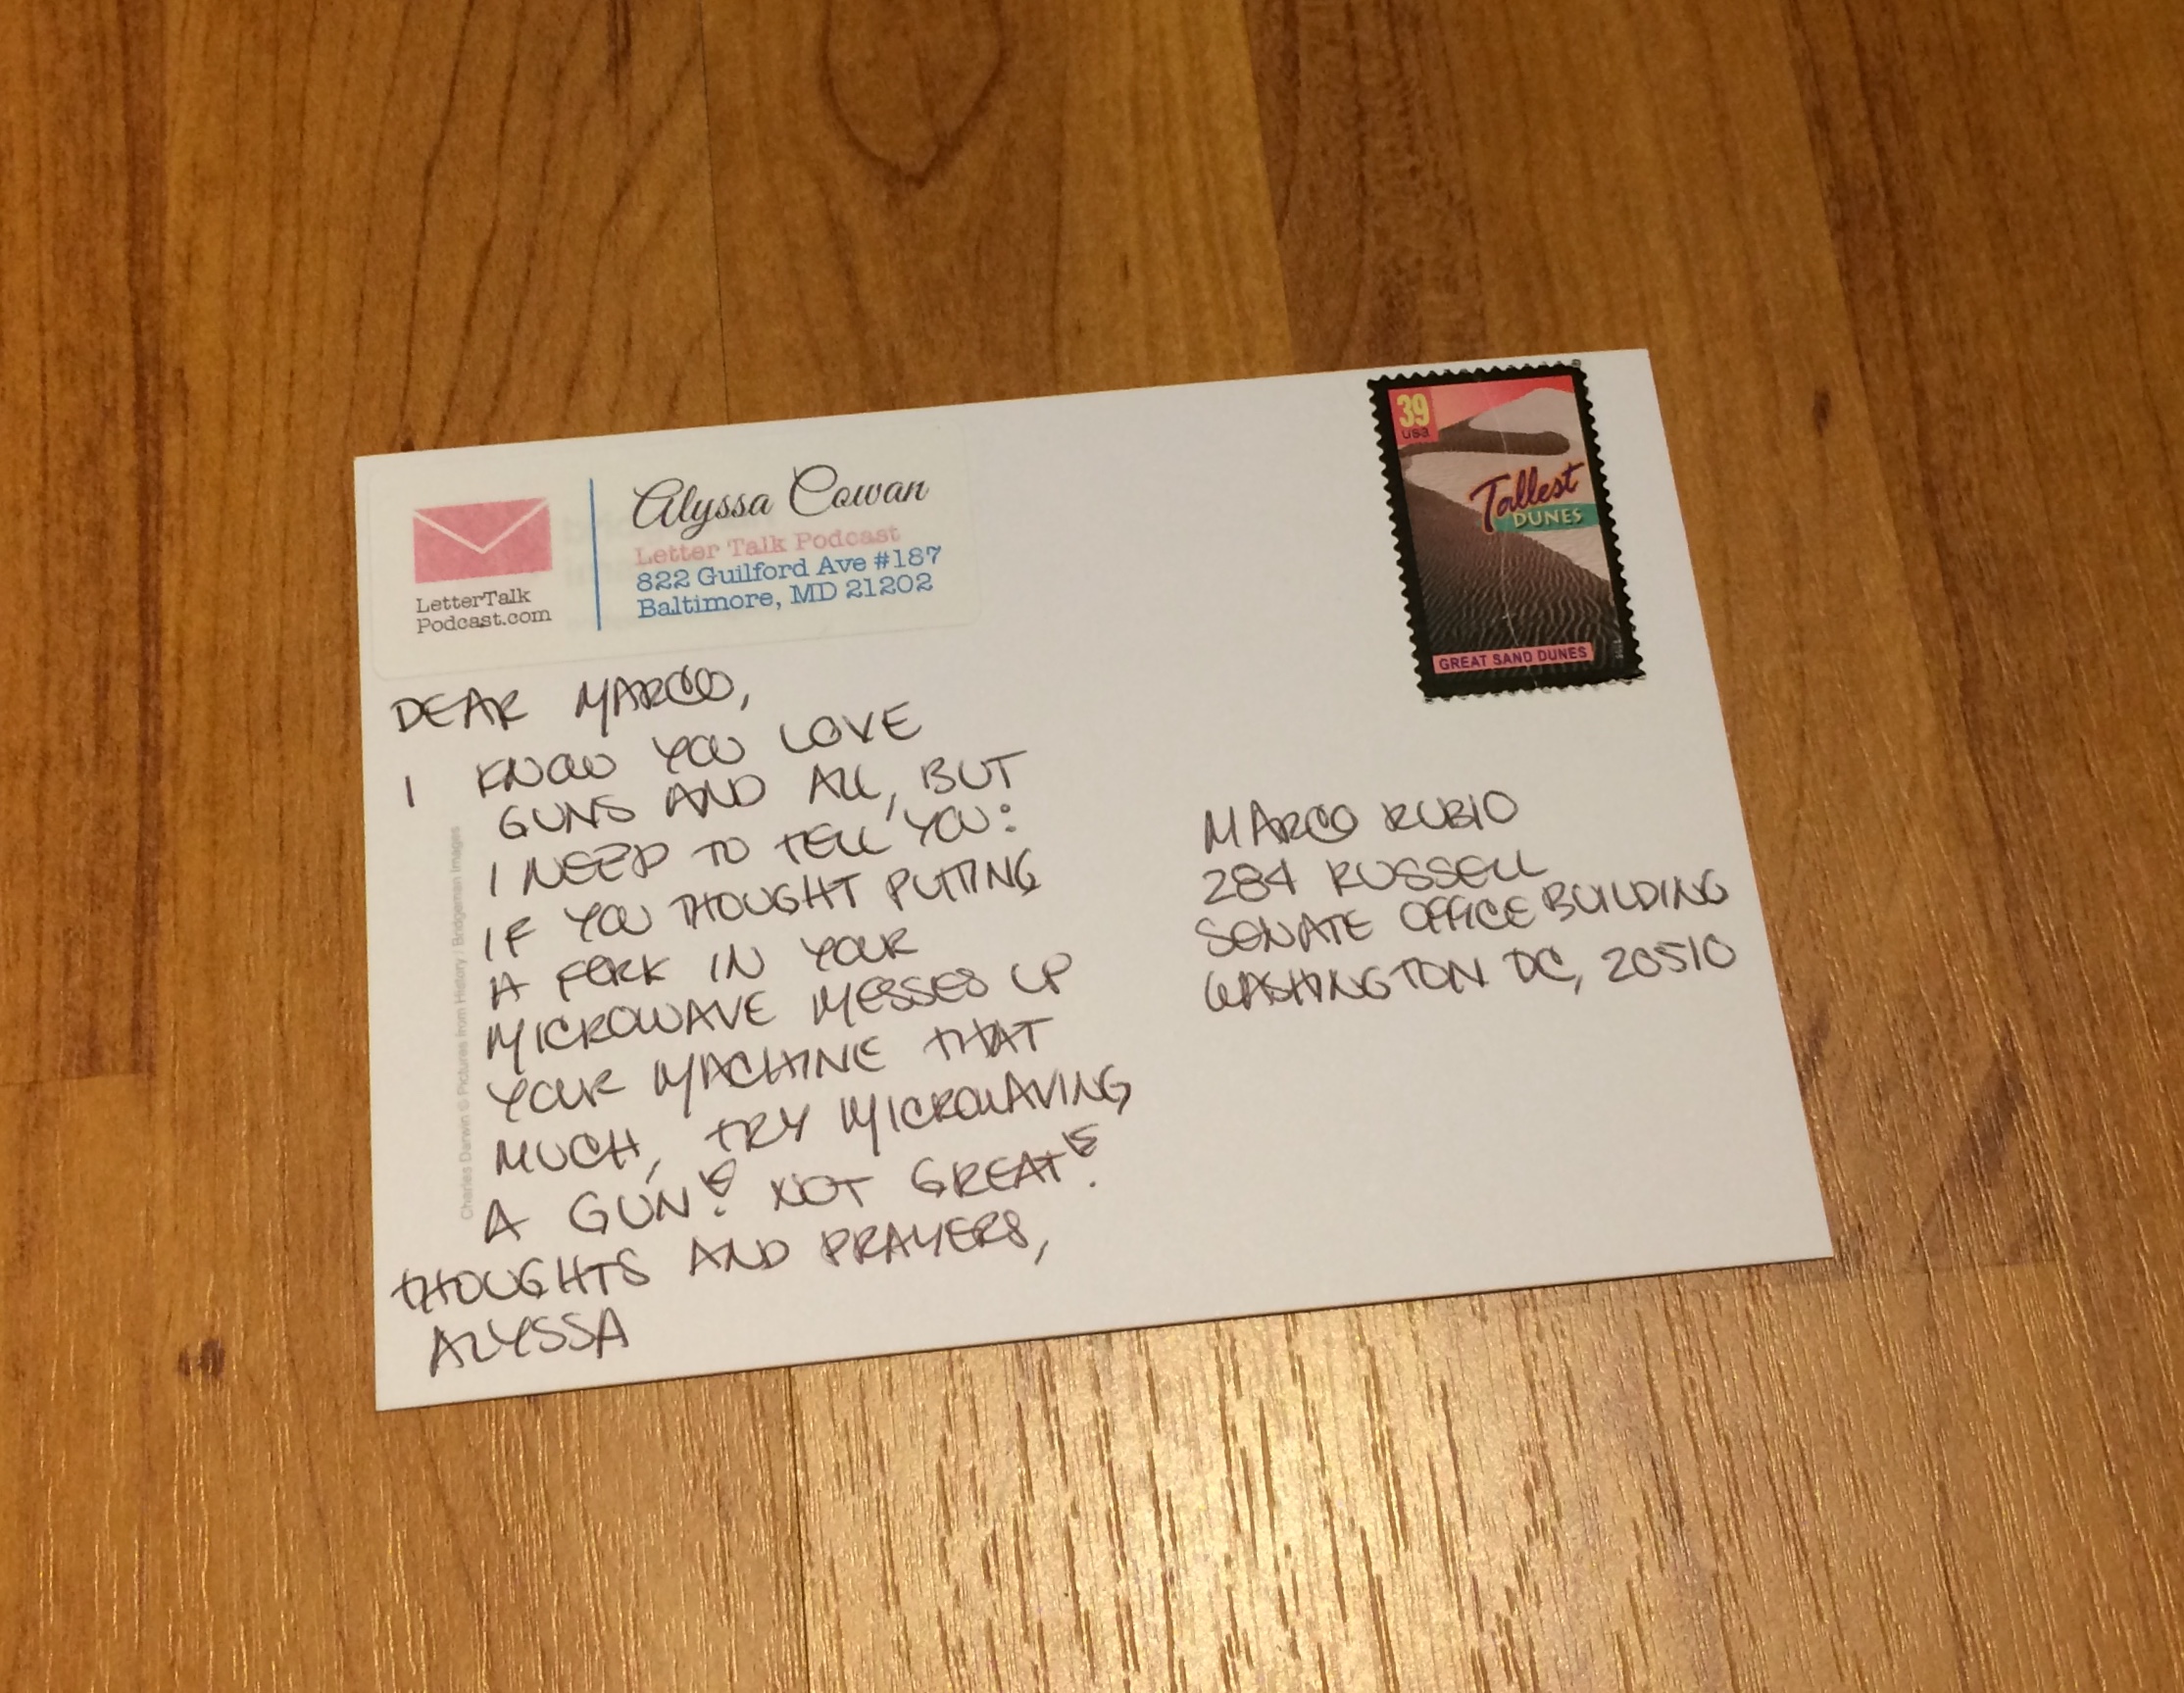 Alyssa Cowan
Letter Talk Podcast
822 Guilford Ave #187
Baltimore, MD 21202
LetterTalk
Podcast.com
39
USA
Tallest
DUNES
GREAT SAND DUNES
DEAR MARCO,
I KNOW YOU LOVE
GUNS AND ALL, BUT
I NEED TO TELL YOU:
IF YOU THOUGHT PUTTING
A FORK IN YOUR
MICROWAVE MESSES UP
YOUR MACHINE THAT
MUCH, TRY MICROWAVING
A GUN! NOT GREAT!
THOUGHTS AND PRAYERS,
ALYSSA
MARCO RUBIO
284 RUSSELL
SENATE OFFICE BUILDING
WASHINGTON DC, 20510
Charles Darwin © Pictures from History / Bridgeman Images